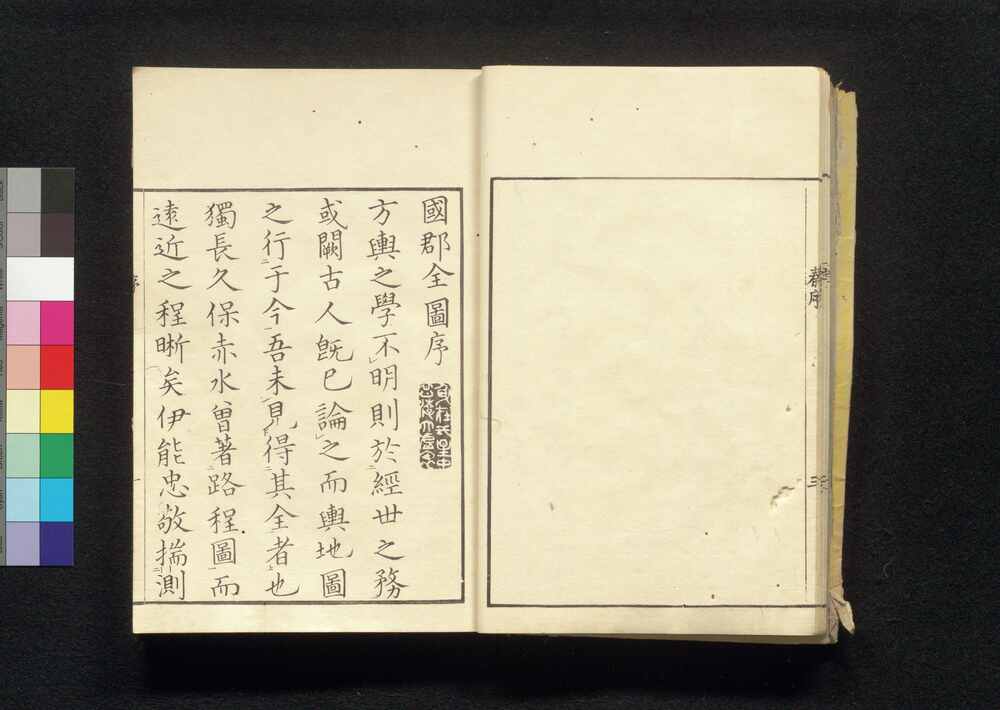 國郡全圖序
方輿之學不明則於經世之務
或闕古人既已論之而輿地圖
之行于今吾未見得其全者也
獨長久保赤水曾著路程圖而
遠近之程晰矣伊能忠敬揣測